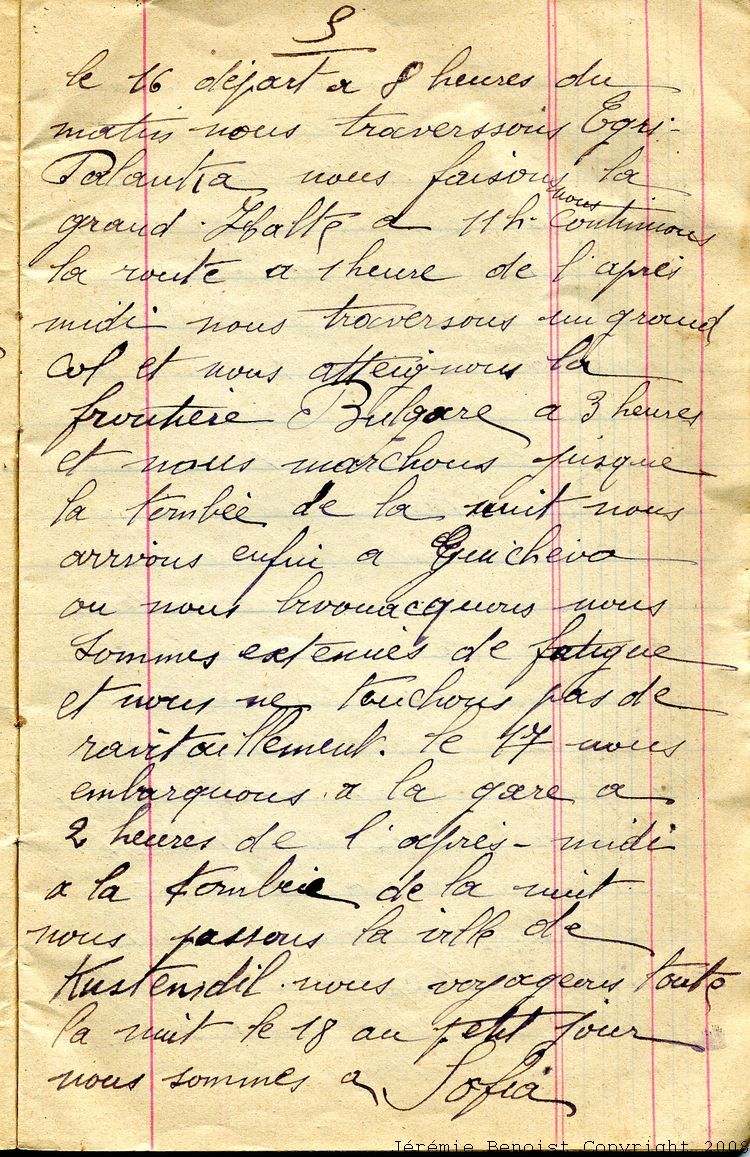 9
le 16 départ a 8 heures du
matin nous traverssons Egri-
Palanka nous faisons la
grand Halte a 11h. nous continuons
la route a 1 heure de l'après
midi nous traversons un grand
col et nous atteignons la
frontière Bulgare a 3 heures
et nous marchons jusque
la tombée de la nuit nous
arrivons enfin a Guicheva
ou nous bivouacquons nous
sommes extenués de fatigue
et nous ne touchons pas de
ravitaillement. le 17 nous
embarquons a la gare a
2 heures de l'après-midi
a la tombée de la nuit
nous passons la ville de
Kustendil nous voyageons toute
la nuit le 18 au petit jour
nous sommes a Sofia
Jérémie Benoist Copyright 2008